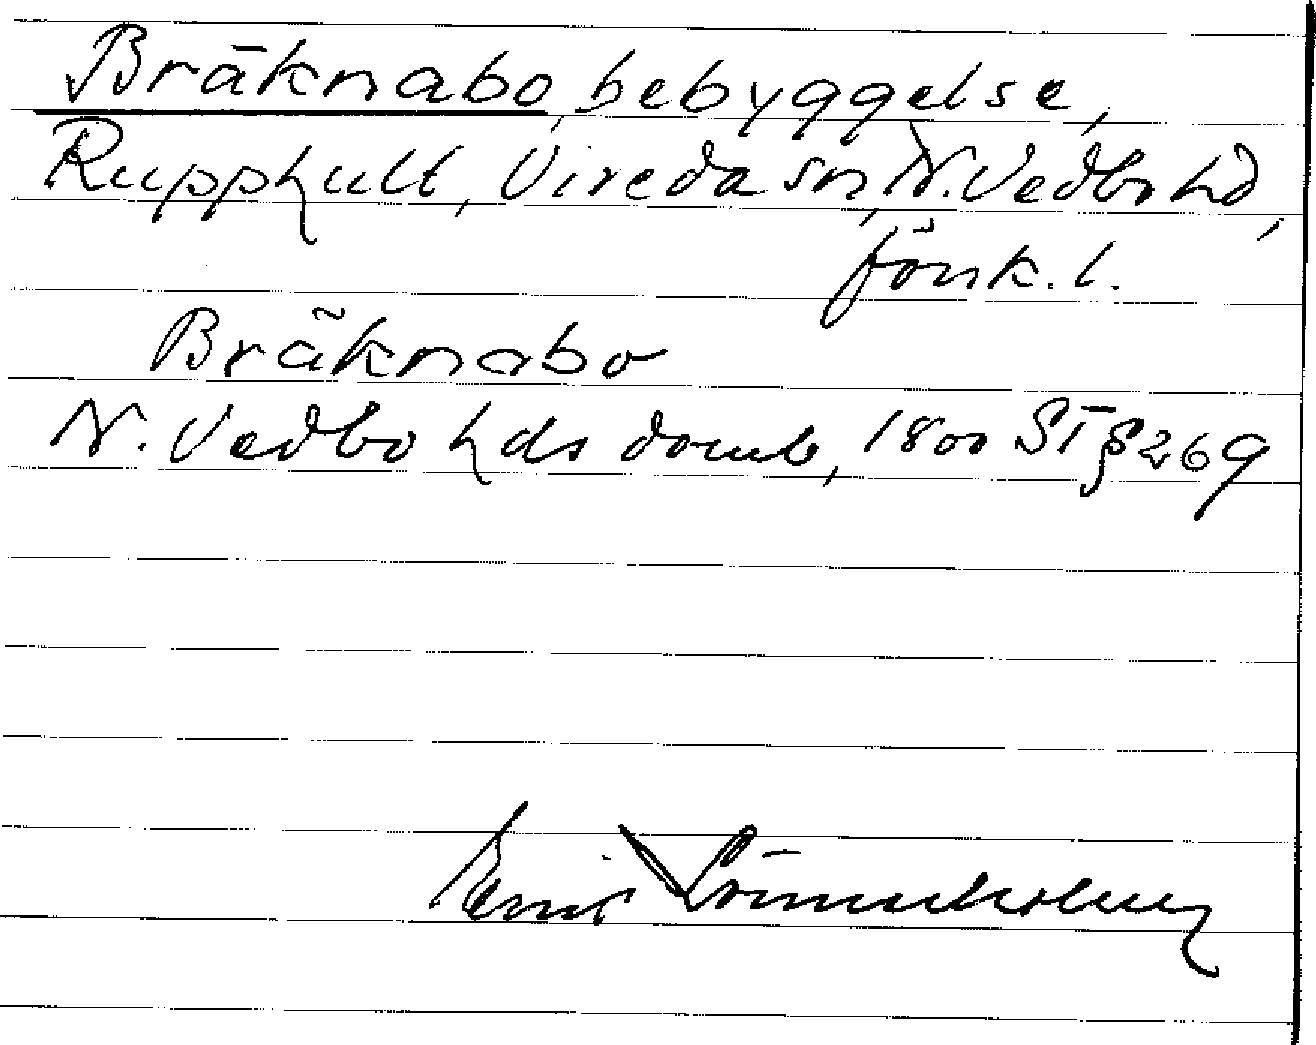 Bräknabo, bebyggelse,
Rupphult, Vireda sn, N. Vedbo hd,
Jönk. l.
Bräknabo
N. Vedbo hds domb, 1800 ST § 269